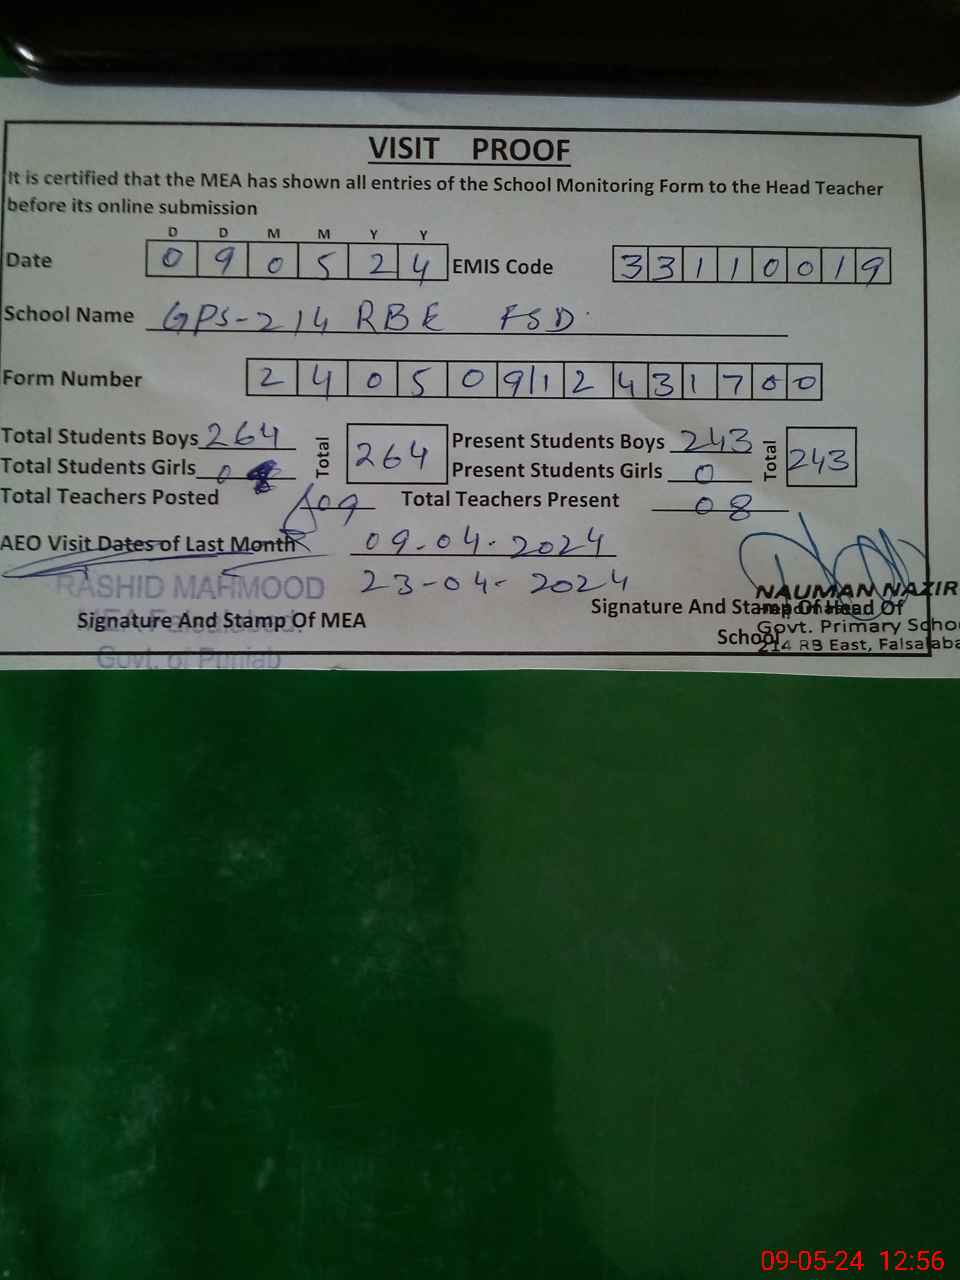 VISIT PROOF
It is certified that the MEA has shown all entries of the School Monitoring Form to the Head Teacher
before its online submission
D D M M Y Y
Date 0 9 0 5 2 4 EMIS Code 3 3 1 1 0 0 1 9
School Name GPS-214 RBE FSD
Form Number 2 4 0 5 0 9 1 2 4 3 1 7 0 0
Total Students Boys 264 Total 264 Present Students Boys 243 Total 243
Total Students Girls 0 Present Students Girls 0
Total Teachers Posted 09 Total Teachers Present 08
AEO Visit Dates of Last Month 09-04-2024
23-04-2024
RASHID MAHMOOD
MEA Faisalabad.
Govt. of Punjab
Signature And Stamp Of MEA
NAUMAN NAZIR
Signature And Stamp Of Head Of
School
Govt. Primary Scho
214 RB East, Faisalaba
09-05-24 12:56